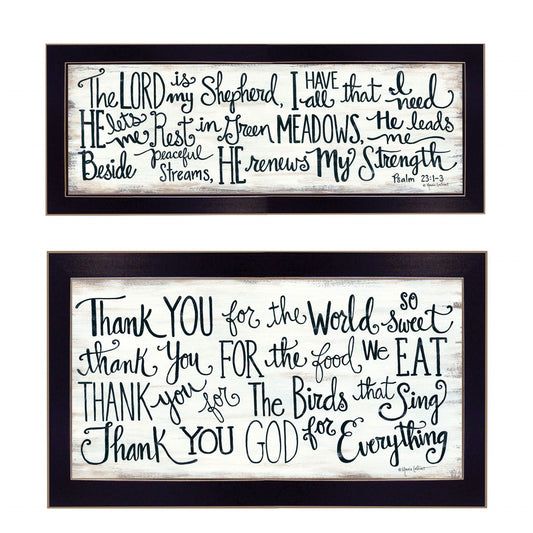 The LORD is my Shepherd, I HAVE all that I need
HE lets me Rest in Green MEADOWS, He leads me
Beside peaceful Streams, HE renews My Strength
Psalm 23:1-3
Thank YOU for the World so sweet
thank You FOR the food We EAT
THANK you for The Birds that Sing
Thank YOU GOD for Everything
© Annie LaPoint